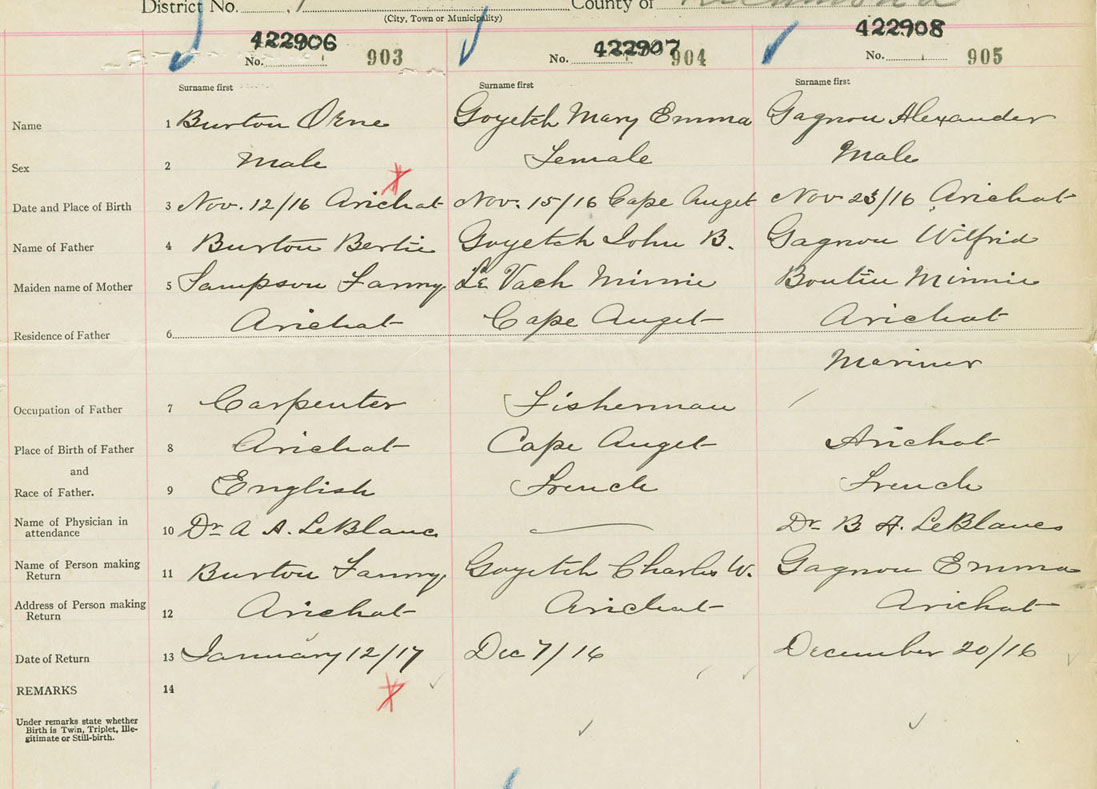 District No. 1 County of Richmond
(City, Town or Municipality)
422906 422907 422908
No. 903 No. 904 No. 905
Surname first Surname first Surname first
Name 1 Burton Orne Goyetch Mary Emma Gagnon Alexander
Sex 2 Male Female Male
Date and Place of Birth 3 Nov. 12/16 Arichat Nov. 15/16 Cape Auget Nov 23/16 Arichat
Name of Father 4 Burton Bertie Goyetch John B. Gagnon Wilfrid
Maiden name of Mother 5 Sampson Fanny Le Vach Minnie Boutin Minnie
Residence of Father 6 Arichat Cape Auget Arichat
Mariner
Occupation of Father 7 Carpenter Fisherman
Place of Birth of Father 8 Arichat Cape Auget Arichat
and
Race of Father. 9 English French French
Name of Physician in
attendance 10 Dr A A. LeBlanc Dr B A. LeBlanc
Name of Person making
Return 11 Burton Fanny Goyetch Charles W. Gagnon Emma
Address of Person making
Return 12 Arichat Arichat Arichat
Date of Return 13 January 12/17 Dec 7/16 December 20/16
REMARKS 14
Under remarks state whether
Birth is Twin, Triplet, Ille-
gitimate or Still-birth.